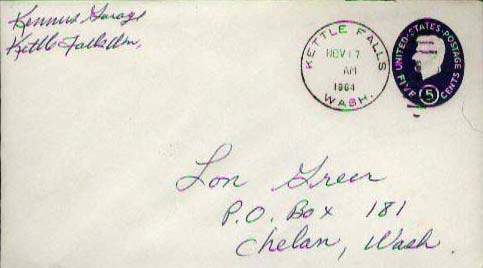 Kennus Garage
Kettle Falls Wn.
KETTLE FALLS
NOV 17
AM
1964
WASH.
UNITED STATES POSTAGE
FIVE 5 CENTS
Lon Greer
P.O. Box 181
Chelan, Wash.